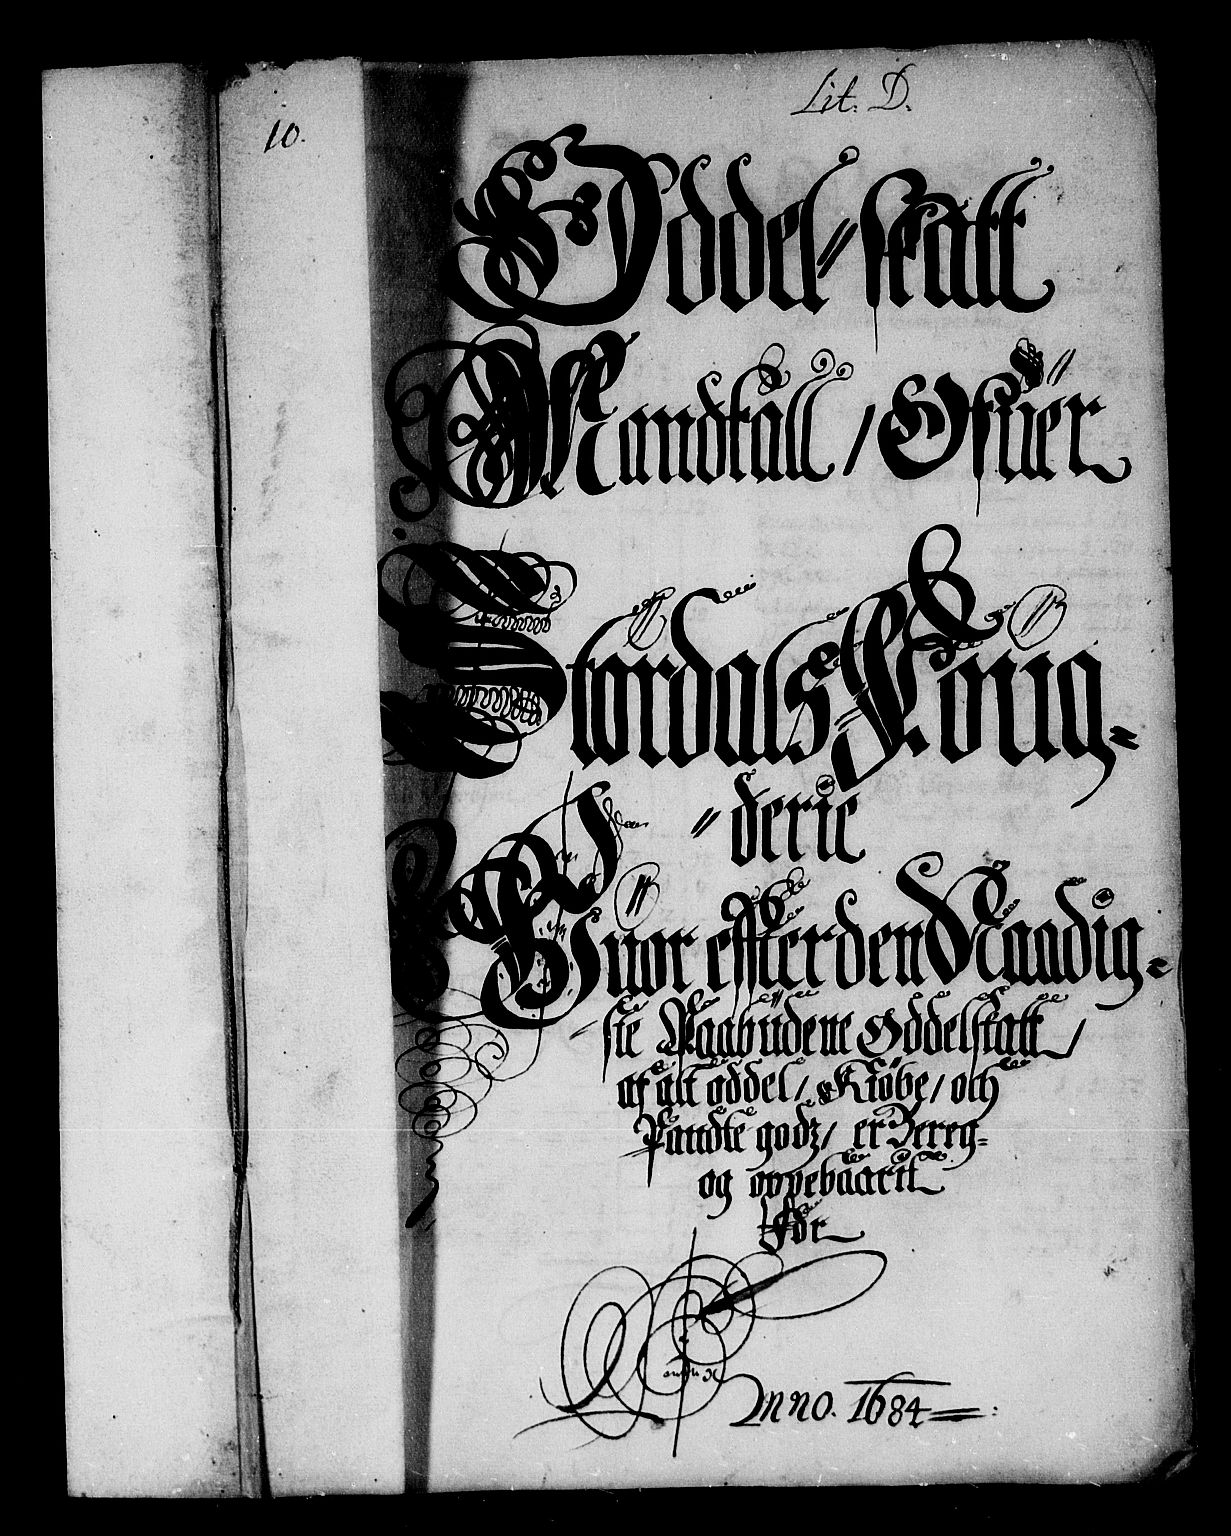 Lit. D.
10.
Oddel=skatt
Mandtall / Ofuer
Stördals Fög
=derie
Huor effter den Naadig=
=ste Paabudene Oddelskatt /
af alt oddel / Kiöbe / och
Pandte godz / er Bereg=
og oppebaarit
För
Anno. 1684